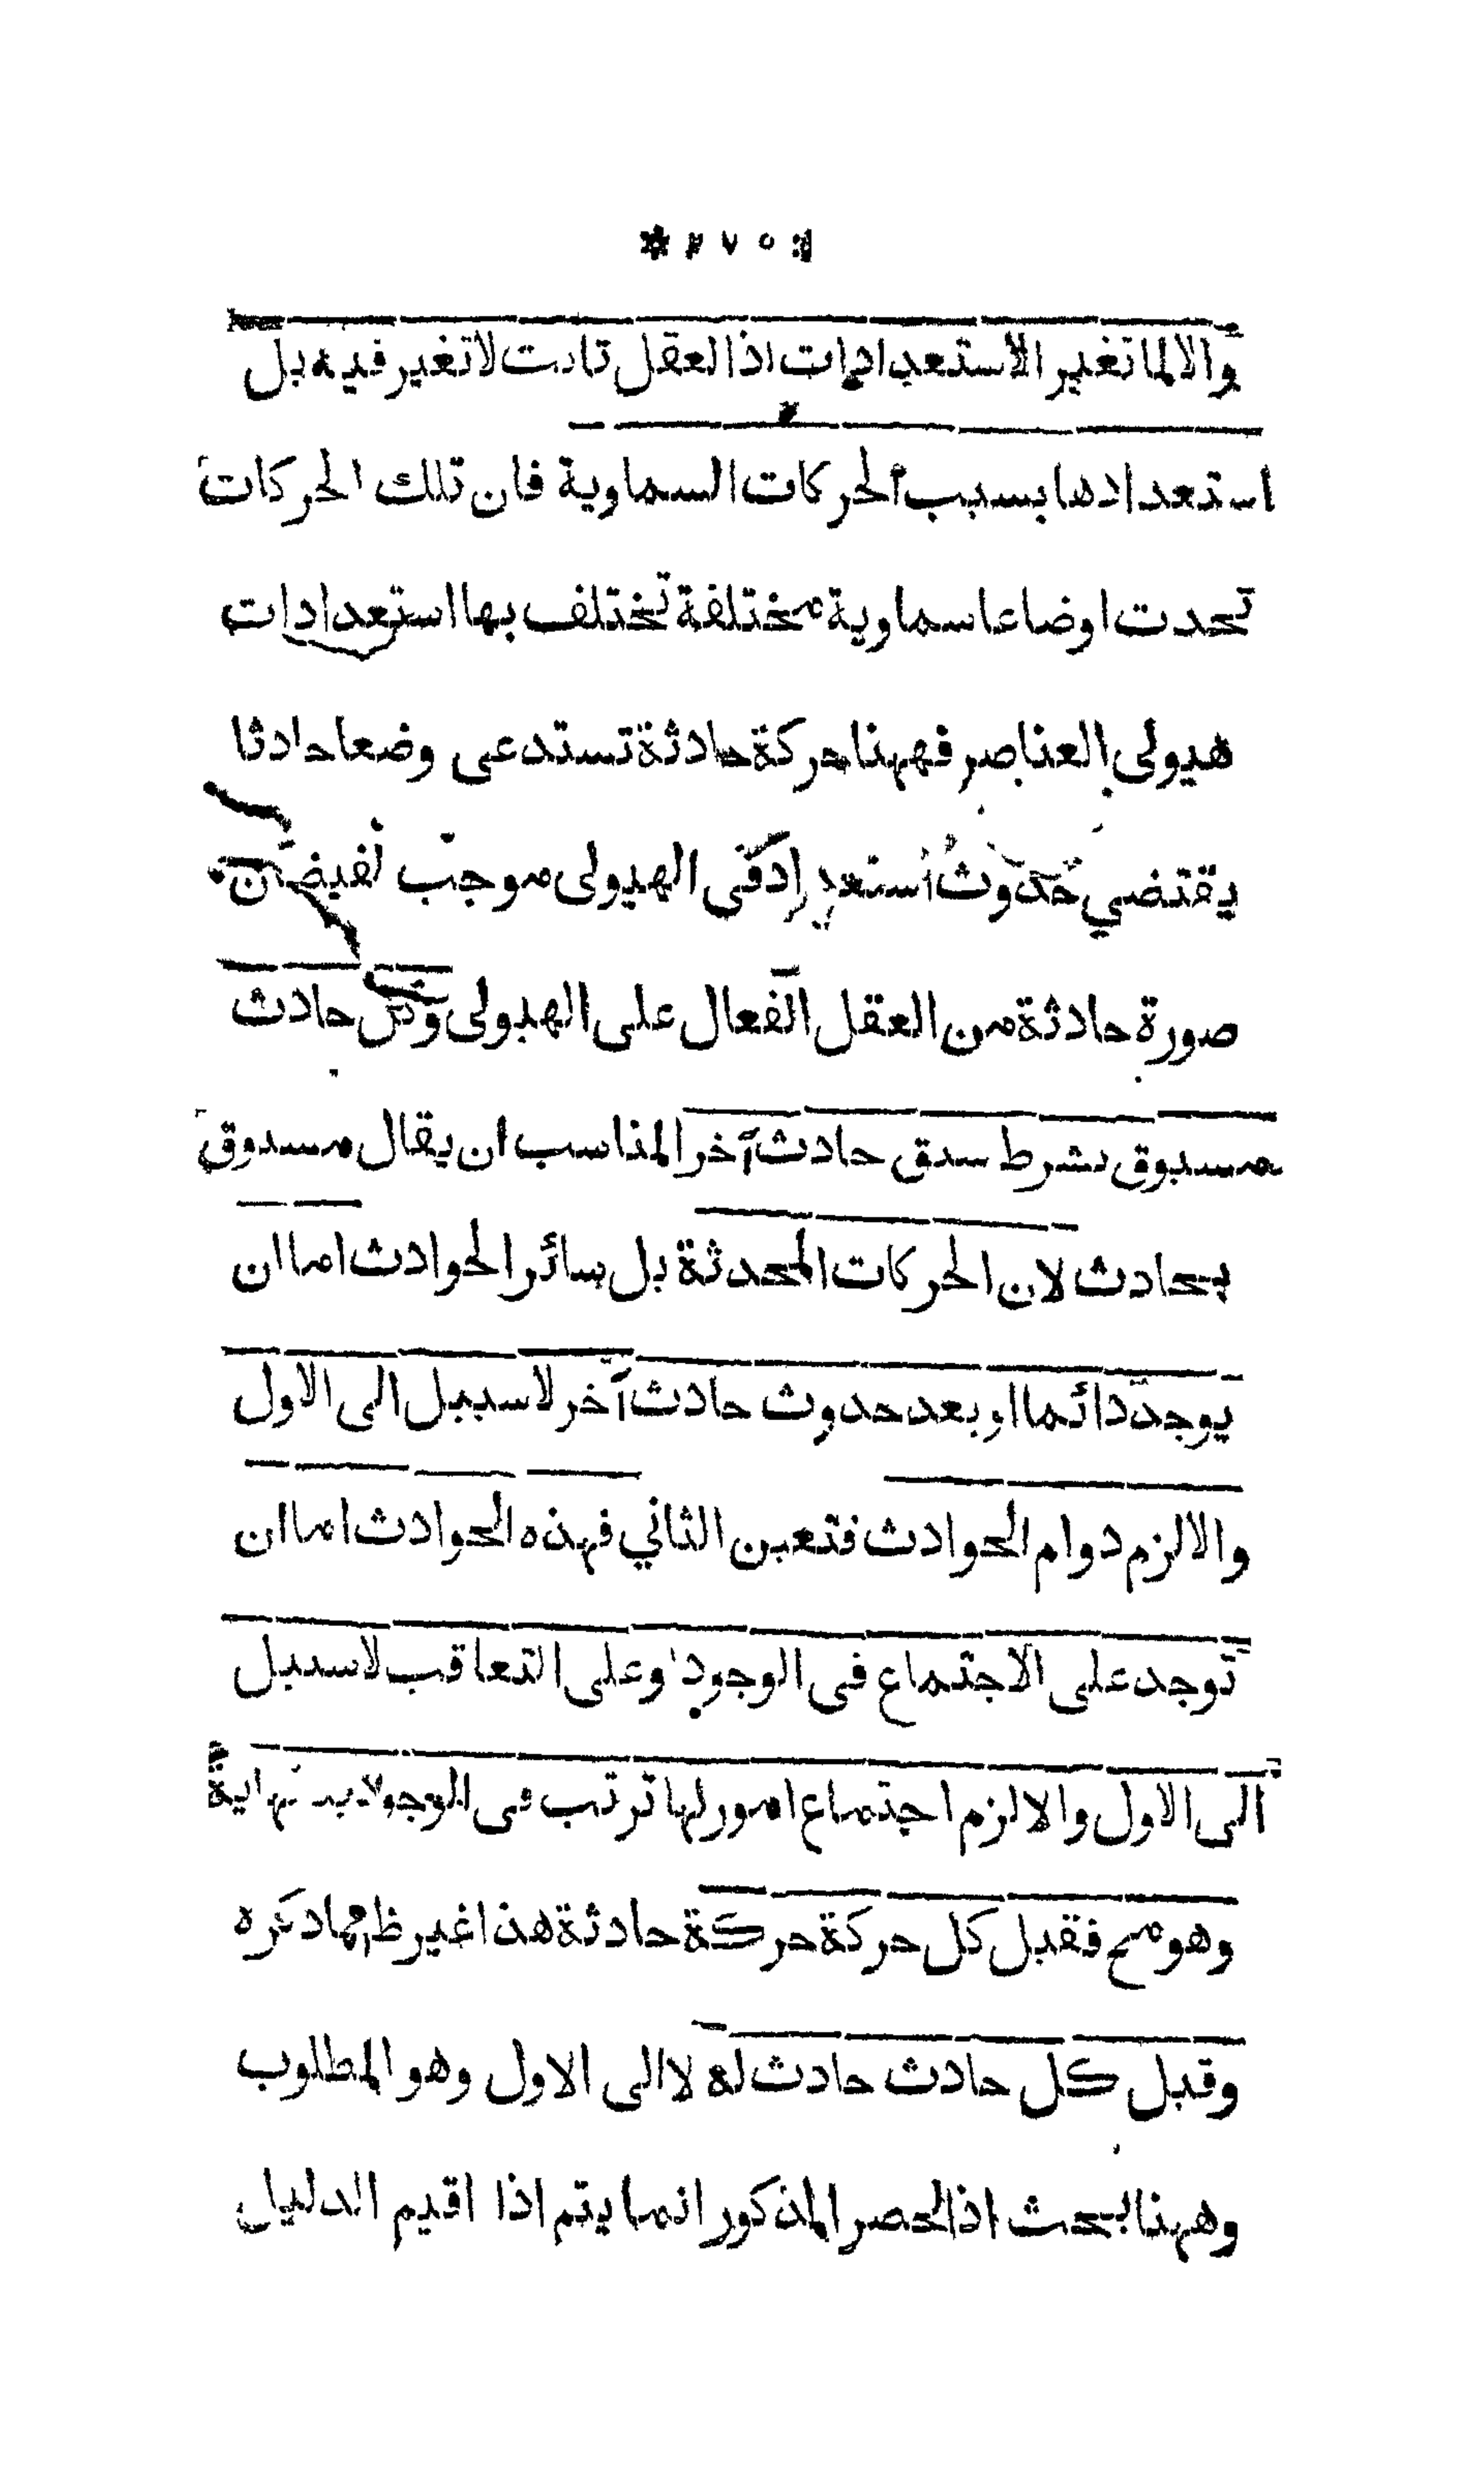 والا لما تغير الاستعدادات اذ العقل ثابت لا تغير فيه بل
استعدادها بسبب الحركات السماوية فان تلك الحركات
تحدث اوضاعا سماوية مختلفة تختلف بها استعدادات
هيولى العناصر فههنا حركة حادثة تستدعى وضعا حادثا
يقتضي حدوث استعداد فى الهيولى موجب لفيضان
صورة حادثة من العقل الفعال على الهيولى وكل حادث
مسبوق بشرط سبق حادث آخر المناسب ان يقال مسبوق
بحادث لان الحركات المحدثة بل سائر الحوادث اما ان
يوجد دائما او بعد حدوث حادث آخر لا سبيل الى الاول
والا لزم دوام الحوادث فتعين الثاني فهذه الحوادث اما ان
توجد على الاجتماع فى الوجود او على التعاقب لا سبيل
الى الاول والا لزم اجتماع امور لها ترتب فى الوجود نهاية
وهو مح فقبل كل حركة حركة حادثة هذا غير ظ مما ذكره
وقبل كل حادث حادث له لا الى الاول وهو المطلوب
وههنا بحث اذ الحصر المذكور انما يتم اذا اقيم الدليل